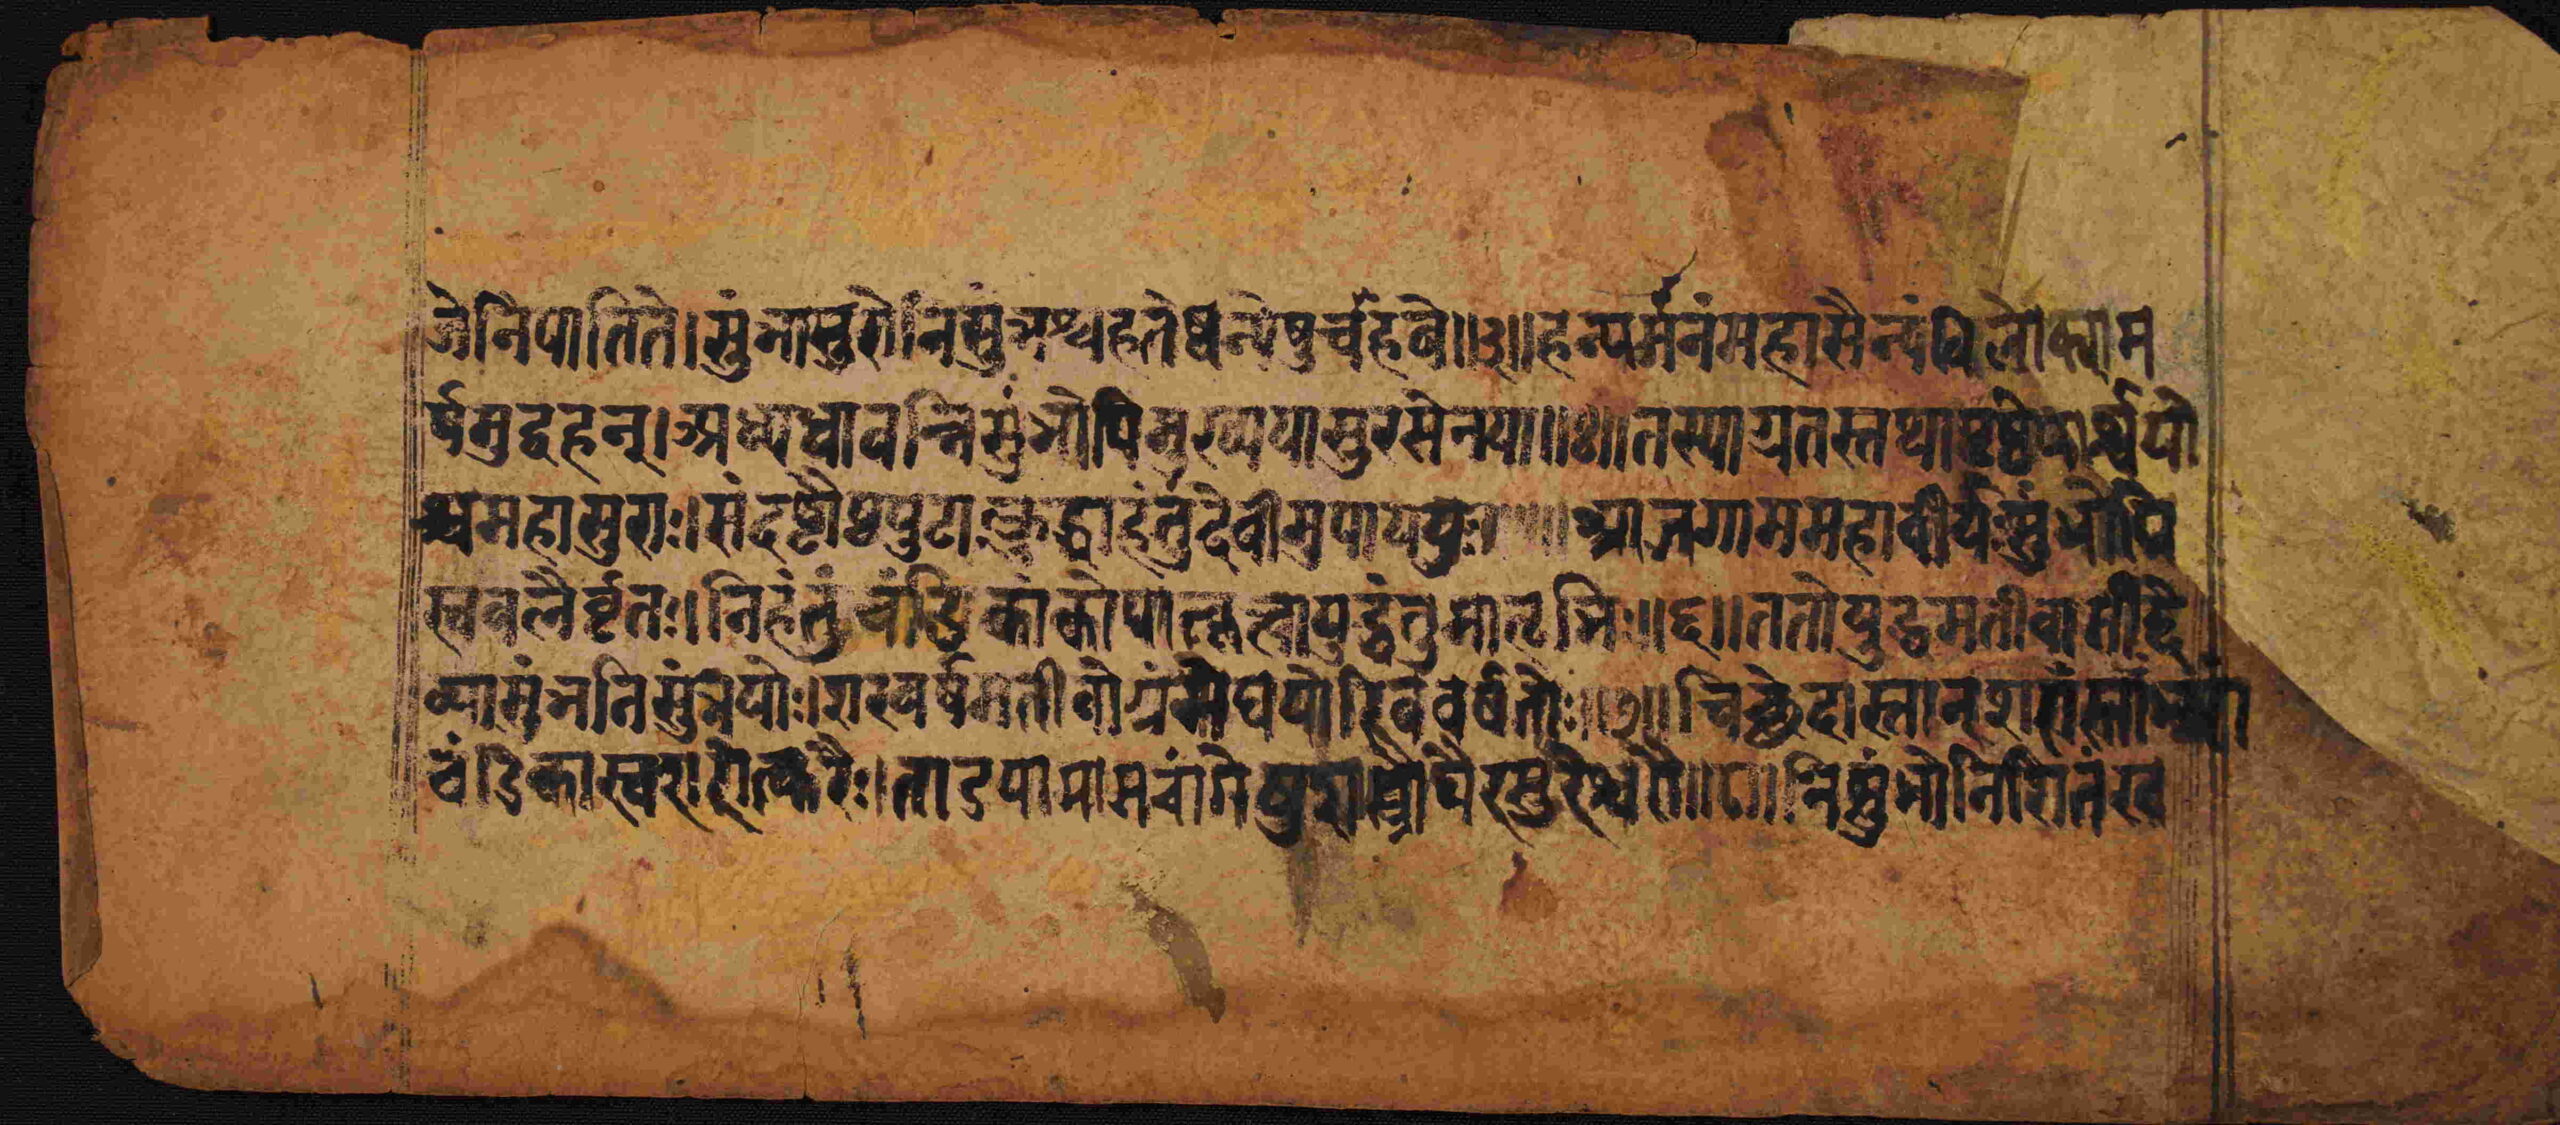 जेनिपातिते।सुंभासुरोनिसुंभश्चहतेष्वन्येषुचाहवे॥३॥हन्यमानंमहासैन्यंविलोक्याम
र्षमुद्वहन्।अभ्यधावन्निसुंभोपिमुख्ययासुरसेनया॥४॥तस्याग्रतस्तथापृष्ठेपार्श्वयो
श्चमहासुराः।संदष्टौष्ठपुटाःक्रुद्धाहंतुंदेवीमुपाययुः।५॥आजगाममहावीर्यःसुंभोपि
स्वबलैर्वृतः।निहंतुंचंडिकांकोपात्कृत्वायुद्धंतुमातृभिः॥६॥ततोयुद्धमतीवासीद्दे
व्यासुंभनिसुंभयोः।शरवर्षमतीवोग्रंमेघयोरिववर्षतोः॥७॥चिच्छेदास्तान्शरांस्ताभ्यां
चंडिकास्वशरोत्करैः।ताडयामासचांगेषुशस्त्रौघैरसुरेश्वरौ॥८॥निसुंभोनिशितंख